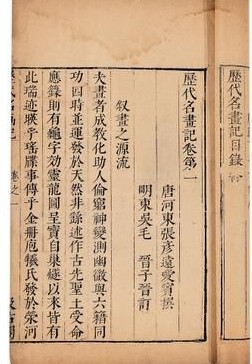 歷代名畫記目錄
歷代名畫記卷第一
唐河東張彥遠愛賓撰
明東吳毛 晉子晉訂
叙畫之源流
夫畫者成敎化助人倫窮神變測幽微與六籍同
功四時並運發於天然非繇述作古先聖王受命
應籙則有龜字効靈龍圖呈寶自巢燧以來皆有
此瑞迹暎乎瑤牒事傳乎金冊庖犧氏發於滎河
卷之一